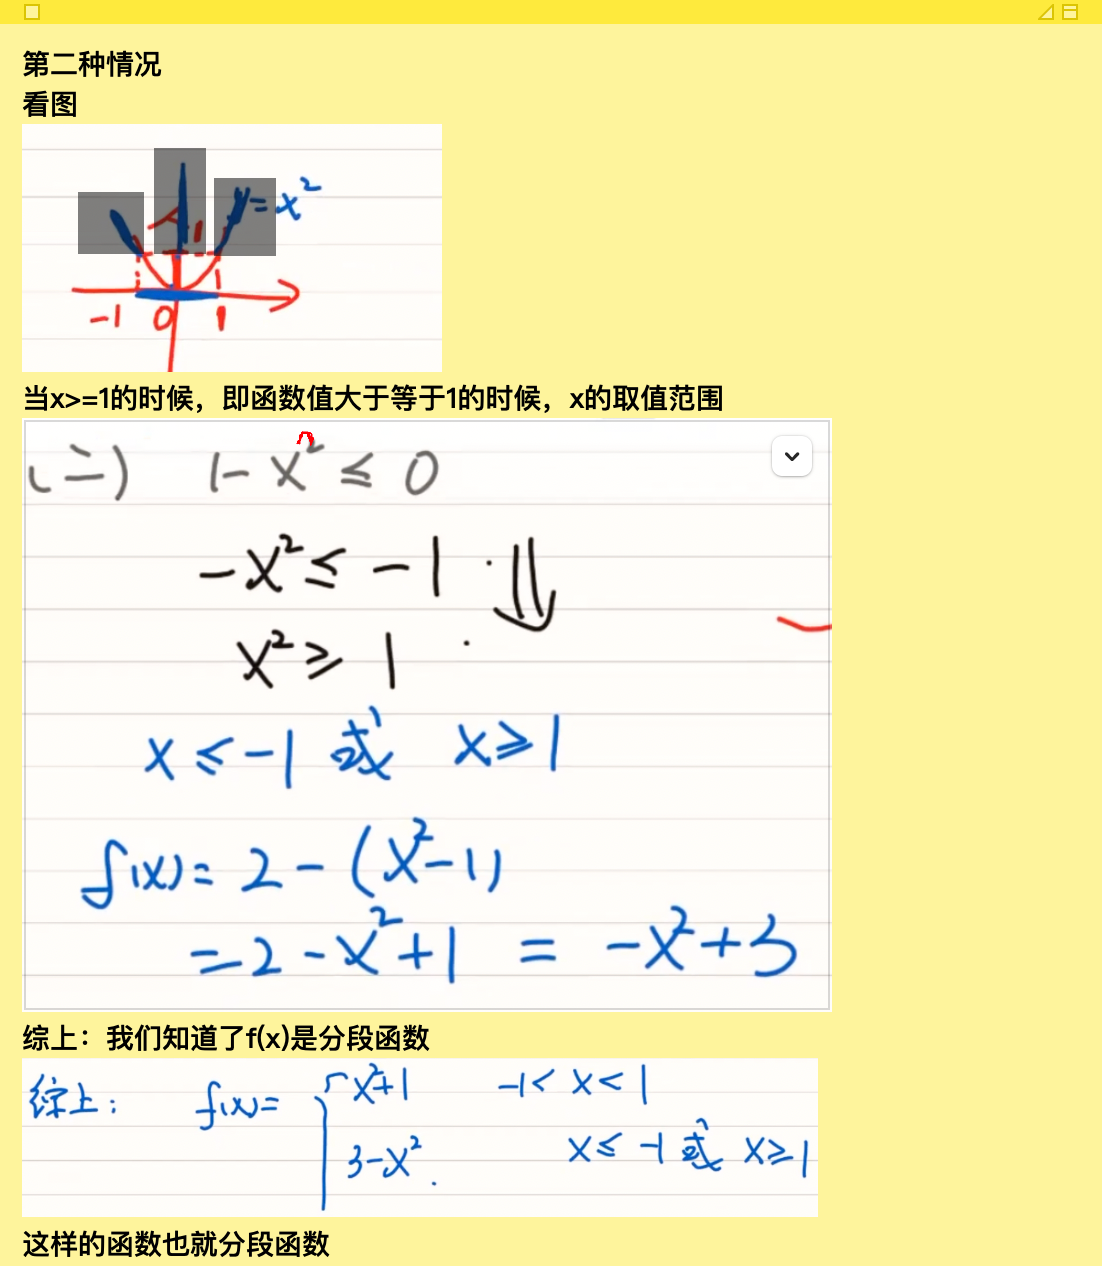 第二种情况
看图
y=x²
1
-1 0 1
当x>=1的时候，即函数值大于等于1的时候，x的取值范围
(二) 1-x² ≤ 0
-x² ≤ -1
x² ≥ 1
x ≤ -1 或 x ≥ 1
f(x) = 2 - (x²-1)
= 2 - x² + 1 = -x²+3
综上：我们知道了f(x)是分段函数
综上： f(x)= { x²+1 -1< x < 1
3-x². x ≤ -1 或 x ≥ 1
这样的函数也就分段函数